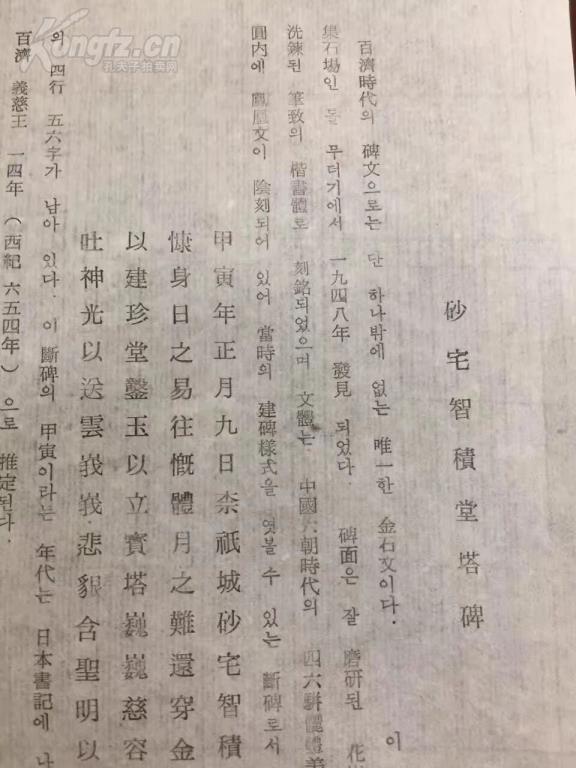 砂宅智積堂塔碑
百濟時代의 碑文으로는 단 하나밖에 없는 唯一한 金石文이다. 이
集石場인 돌 무더기에서 一九四八年 發見 되었다. 碑面은 잘 磨研된 花
洗鍊된 筆致의 楷書體로 刻銘되었으며 文體는 中國六朝時代의 四六騈儷體
圓內에 鳳凰文이 陰刻되어 있어 當時의 建碑樣式을 엿볼 수 있는 斷碑로서
甲寅年正月九日柰祇城砂宅智積
慷身日之易往慨體月之難還穿金
以建珍堂鑿玉以立寶塔巍巍慈容
吐神光以送雲峩峩悲貇含聖明以
의 四行 五六字가 남아 있다. 이 斷碑의 甲寅이라는 年代는 日本書記에 나
百濟 義慈王 一四年 (西紀 六五四年) 으로 推定된다.
Kongfz.cn
孔夫子拍卖网